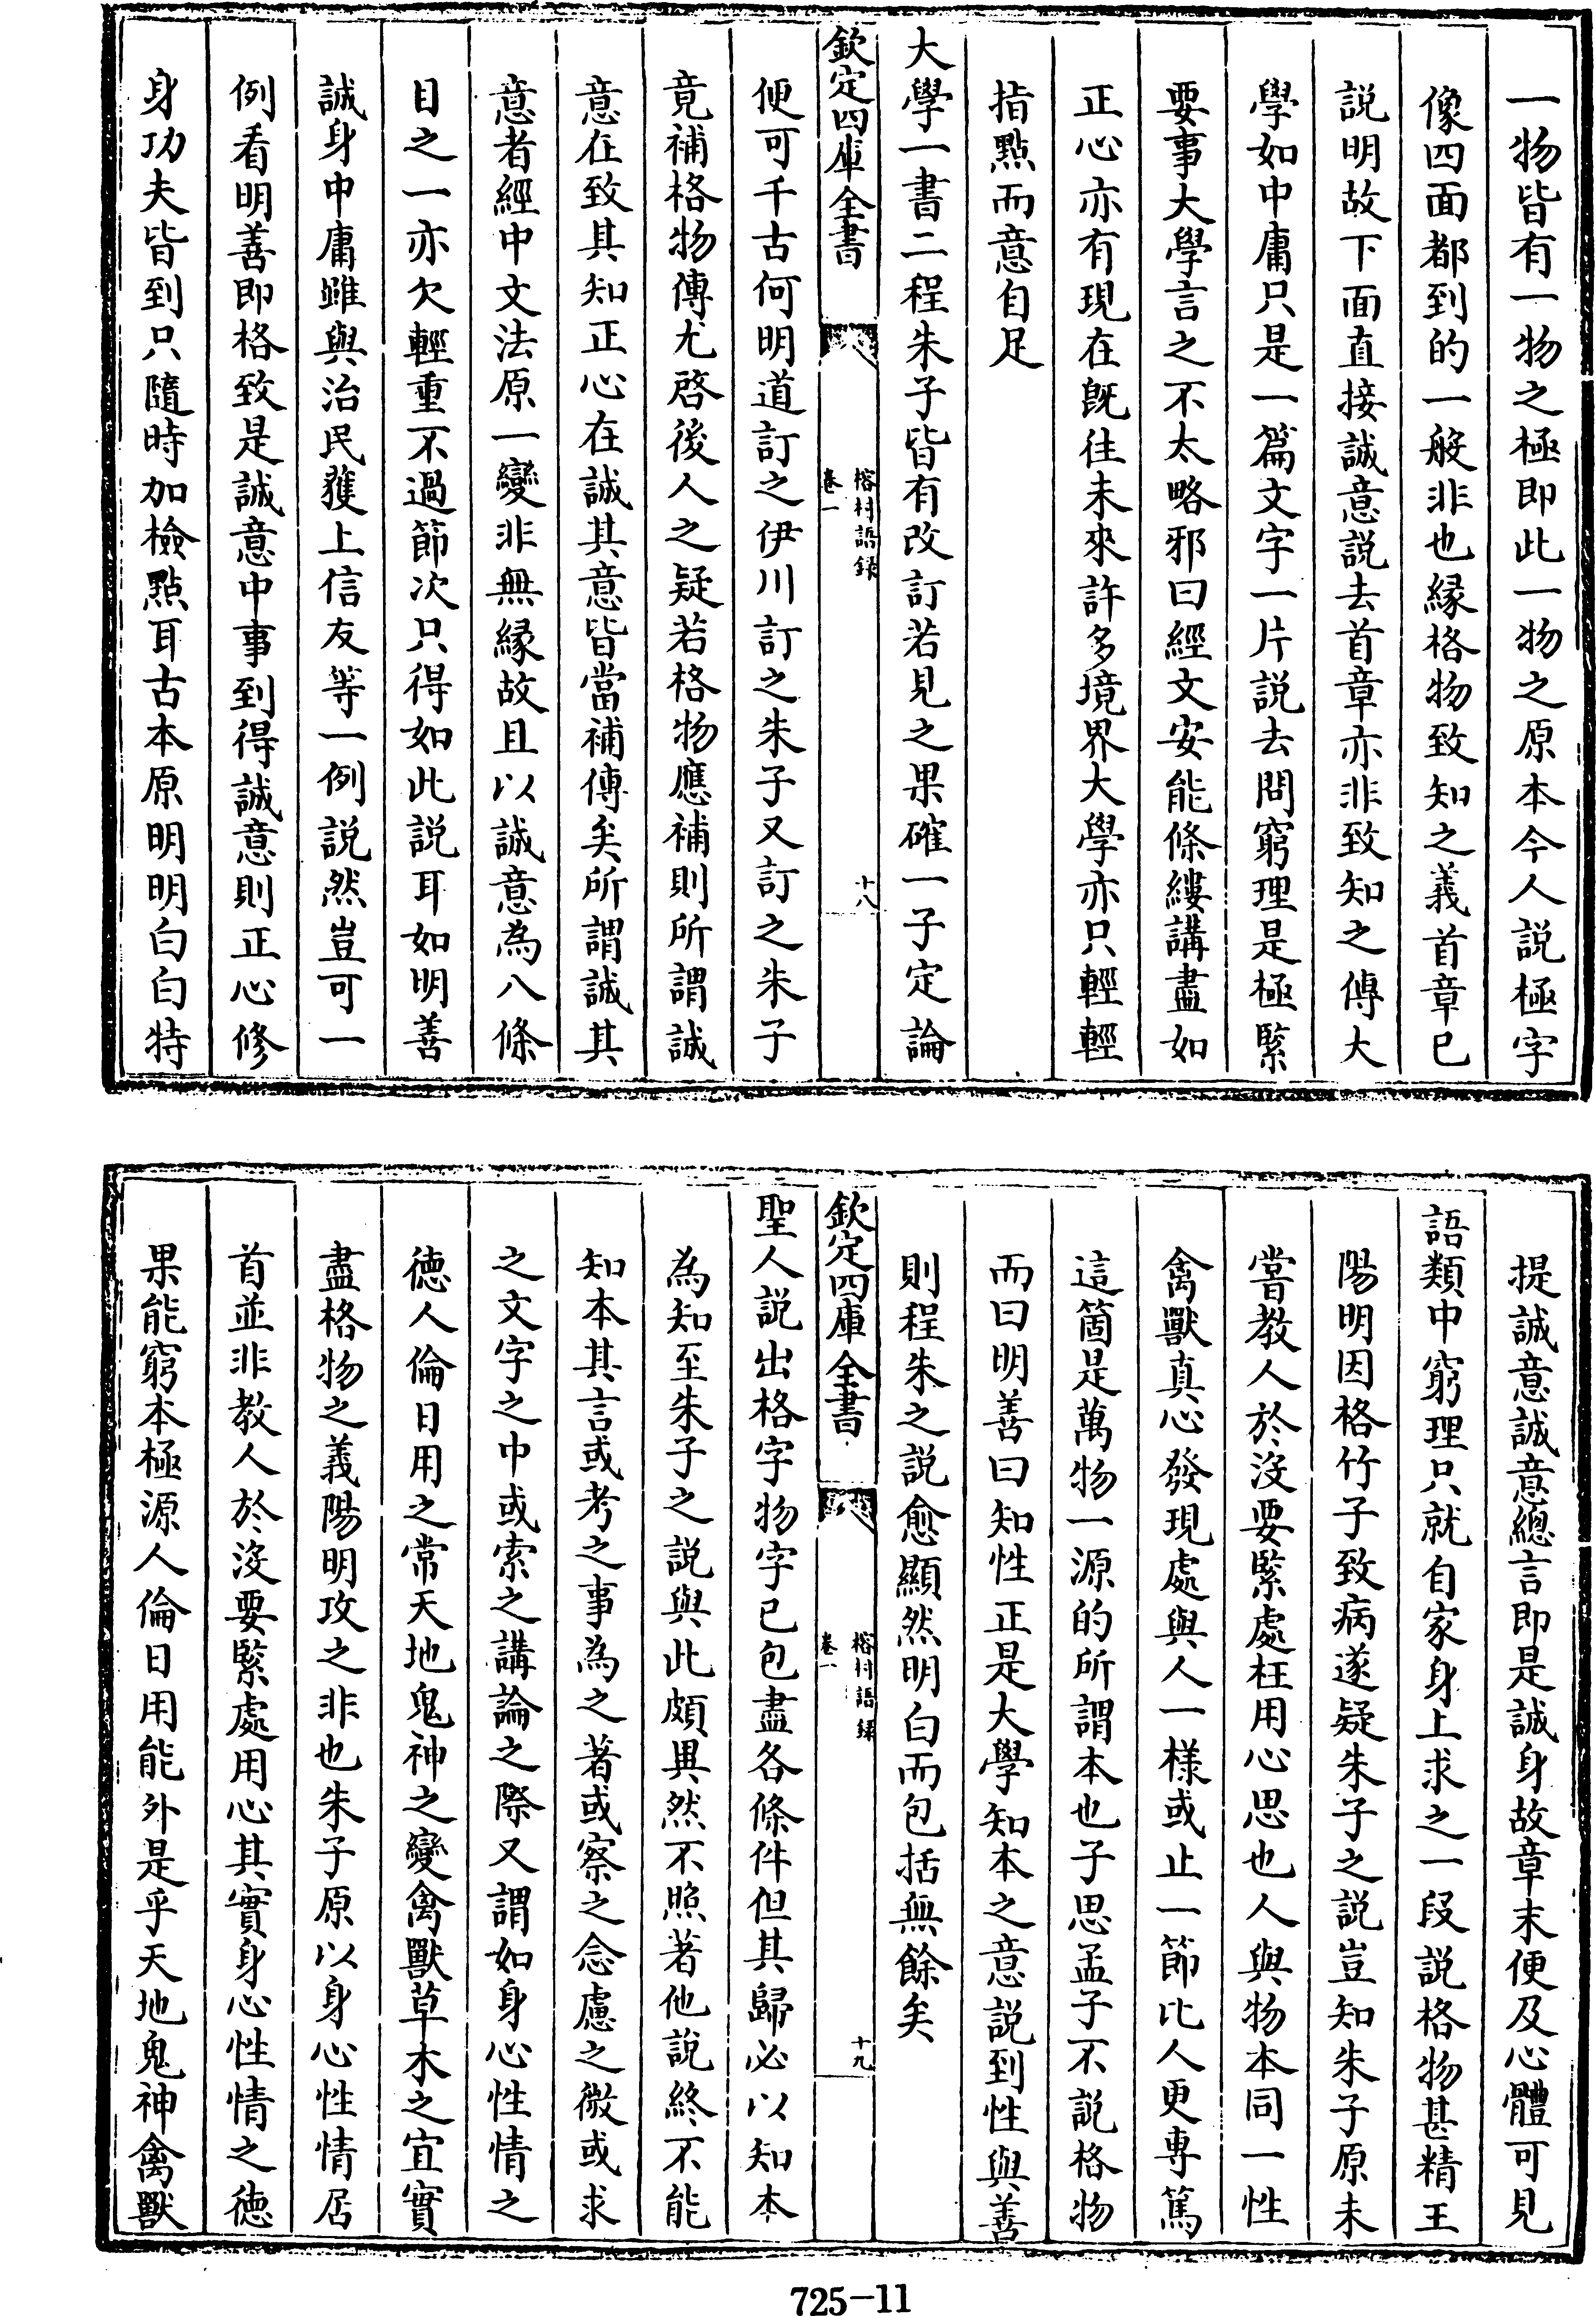 一物皆有一物之極即此一物之原本今人説極字
像四面都到的一般非也緣格物致知之義首章已
説明故下面直接誠意説去首章亦非致知之傳大
學如中庸只是一篇文字一片説去問窮理是極緊
要事大學言之不太略邪曰經文安能條縷講盡如
正心亦有現在既往未來許多境界大學亦只輕輕
指點而意自足
大學一書二程朱子皆有改訂若見之果確一子定論
欽定四庫全書
榕村語錄
卷一
十八
便可千古何明道訂之伊川訂之朱子又訂之朱子
竟補格物傳尤啓後人之疑若格物應補則所謂誠
意在致其知正心在誠其意皆當補傳矣所謂誠其
意者經中文法原一變非無緣故且以誠意為八條
目之一亦欠輕重不過節次只得如此説耳如明善
誠身中庸雖與治民獲上信友等一例説然豈可一
例看明善即格致是誠意中事到得誠意則正心修
身功夫皆到只隨時加檢點耳古本原明明白白特
提誠意誠意總言即是誠身故章末便及心體可見
語類中窮理只就自家身上求之一段説格物甚精王
陽明因格竹子致病遂疑朱子之説豈知朱子原未
嘗教人於沒要緊處枉用心思也人與物本同一性
禽獸真心發現處與人一樣或止一節比人更專篤
這箇是萬物一源的所謂本也子思孟子不説格物
而曰明善曰知性正是大學知本之意説到性與善
則程朱之説愈顯然明白而包括無餘矣
欽定四庫全書
榕村語錄
卷一
十九
聖人説出格字物字已包盡各條件但其歸必以知本
為知至朱子之説與此頗異然不照著他説終不能
知本其言或考之事為之著或察之念慮之微或求
之文字之中或索之講論之際又謂如身心性情之
德人倫日用之常天地鬼神之變禽獸草木之宜實
盡格物之義陽明攻之非也朱子原以身心性情居
首並非教人於沒要緊處用心其實身心性情之德
果能窮本極源人倫日用能外是乎天地鬼神禽獸
725-11